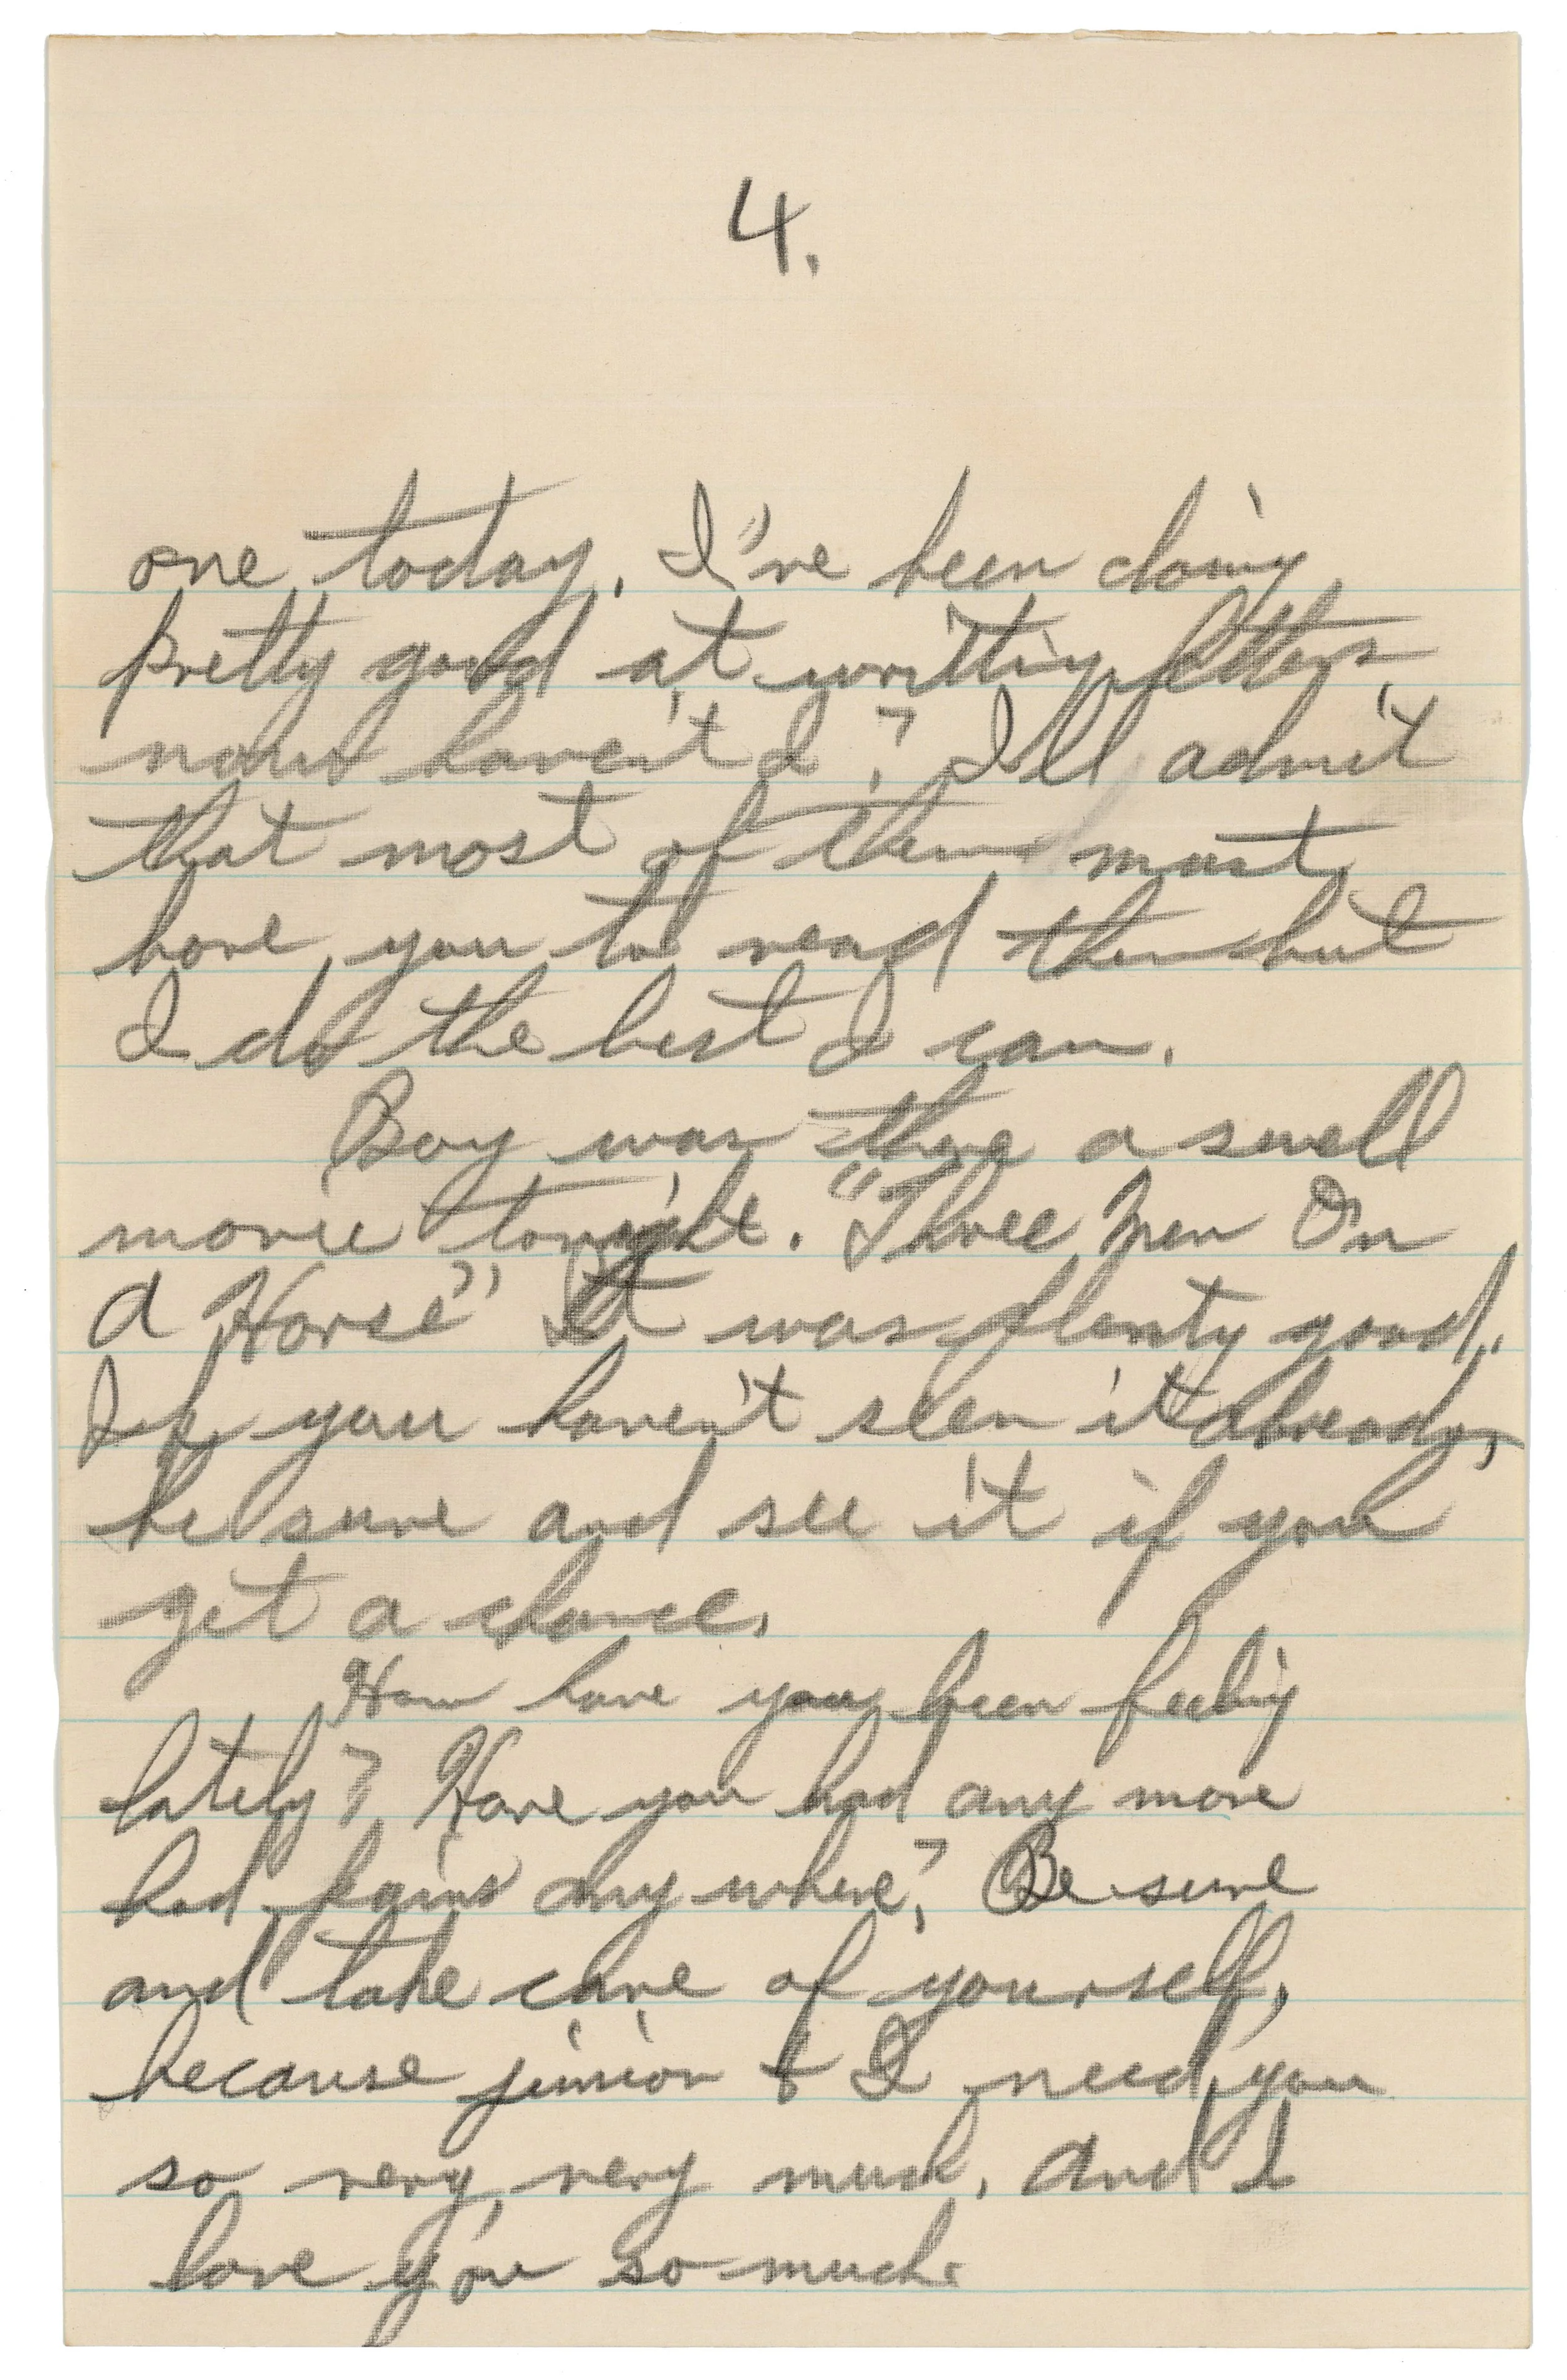 4.
one today. I've been doing
pretty good at writing letters
now haven't I? I'll admit
that most of them must
bore you to read them but
I do the best I can.
Boy was there a swell
movie tonight. "Three Men On
A Horse" It was plenty good.
If you haven't seen it already,
be sure and see it if you
get a chance.
How have you been feeling
lately? Have you had any more
bad pains any where? Be sure
and take care of yourself,
because junior & I need you
so very, very much. And I
love you so much.